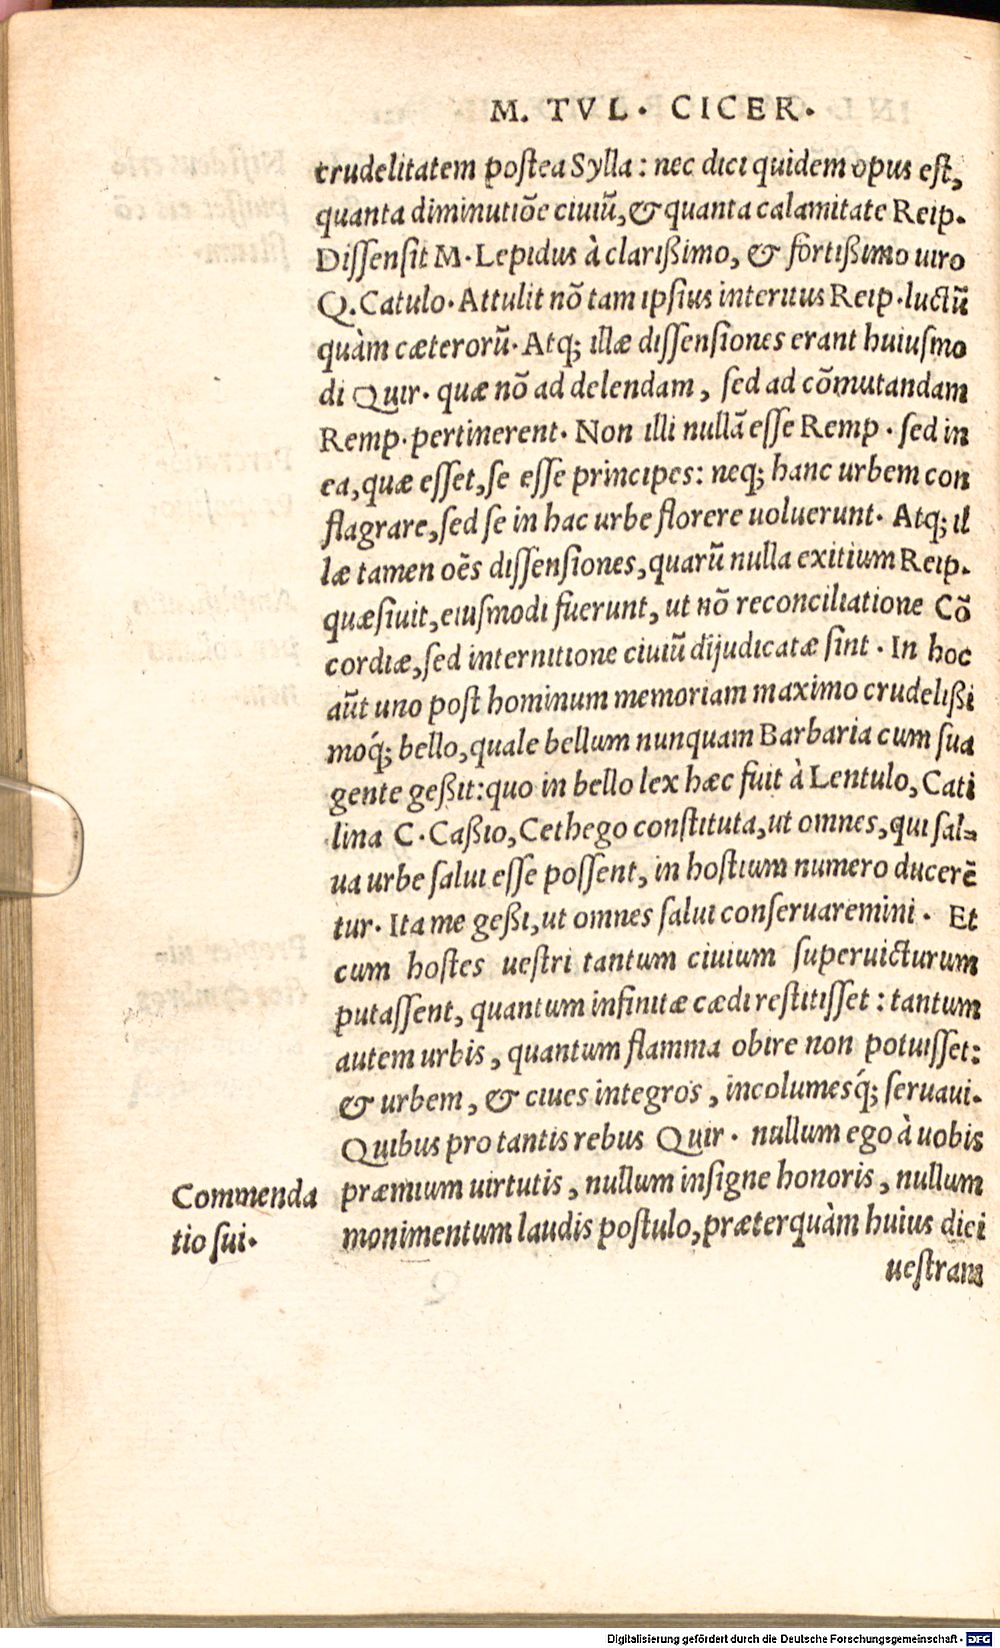 M. TVL. CICER.
crudelitatem postea Sylla: nec dici quidem opus est,
quanta diminutiõe ciuiũ, & quanta calamitate Reip.
Dissensit M. Lepidus à clarißimo, & fortißimo uiro
Q. Catulo. Attulit nõ tam ipsius interitus Reip. luctũ
quàm cæterorũ. Atq; illæ dissensiones erant huiusmo
di Quir. quæ nõ ad delendam, sed ad cõmutandam
Remp. pertinerent. Non illi nullã esse Remp. sed in
ea, quæ esset, se esse principes: neq; hanc urbem con
flagrare, sed se in hac urbe florere uoluerunt. Atq; il
læ tamen oẽs dissensiones, quarũ nulla exitium Reip.
quæsiuit, eiusmodi fuerunt, ut nõ reconciliatione Cõ
cordiæ, sed internitione ciuiũ dijudicatæ sint. In hoc
aũt uno post hominum memoriam maximo crudelißi
moq́; bello, quale bellum nunquam Barbaria cum sua
gente geßit: quo in bello lex hæc fuit à Lentulo, Cati
lina C. Caßio, Cethego constituta, ut omnes, qui sal=
ua urbe salui esse possent, in hostium numero ducerẽ
tur. Ita me geßi, ut omnes salui conseruaremini. Et
cum hostes uestri tantum ciuium superuicturum
putassent, quantum infinitæ cædi restitisset: tantum
autem urbis, quantum flamma obire non potuisset:
& urbem, & ciues integros, incolumesq́; seruaui.
Quibus pro tantis rebus Quir. nullum ego à uobis
præmium uirtutis, nullum insigne honoris, nullum
monimentum laudis postulo, præterquàm huius diei
uestram
Commenda
tio sui.
Digitalisierung gefördert durch die Deutsche Forschungsgemeinschaft - DFG